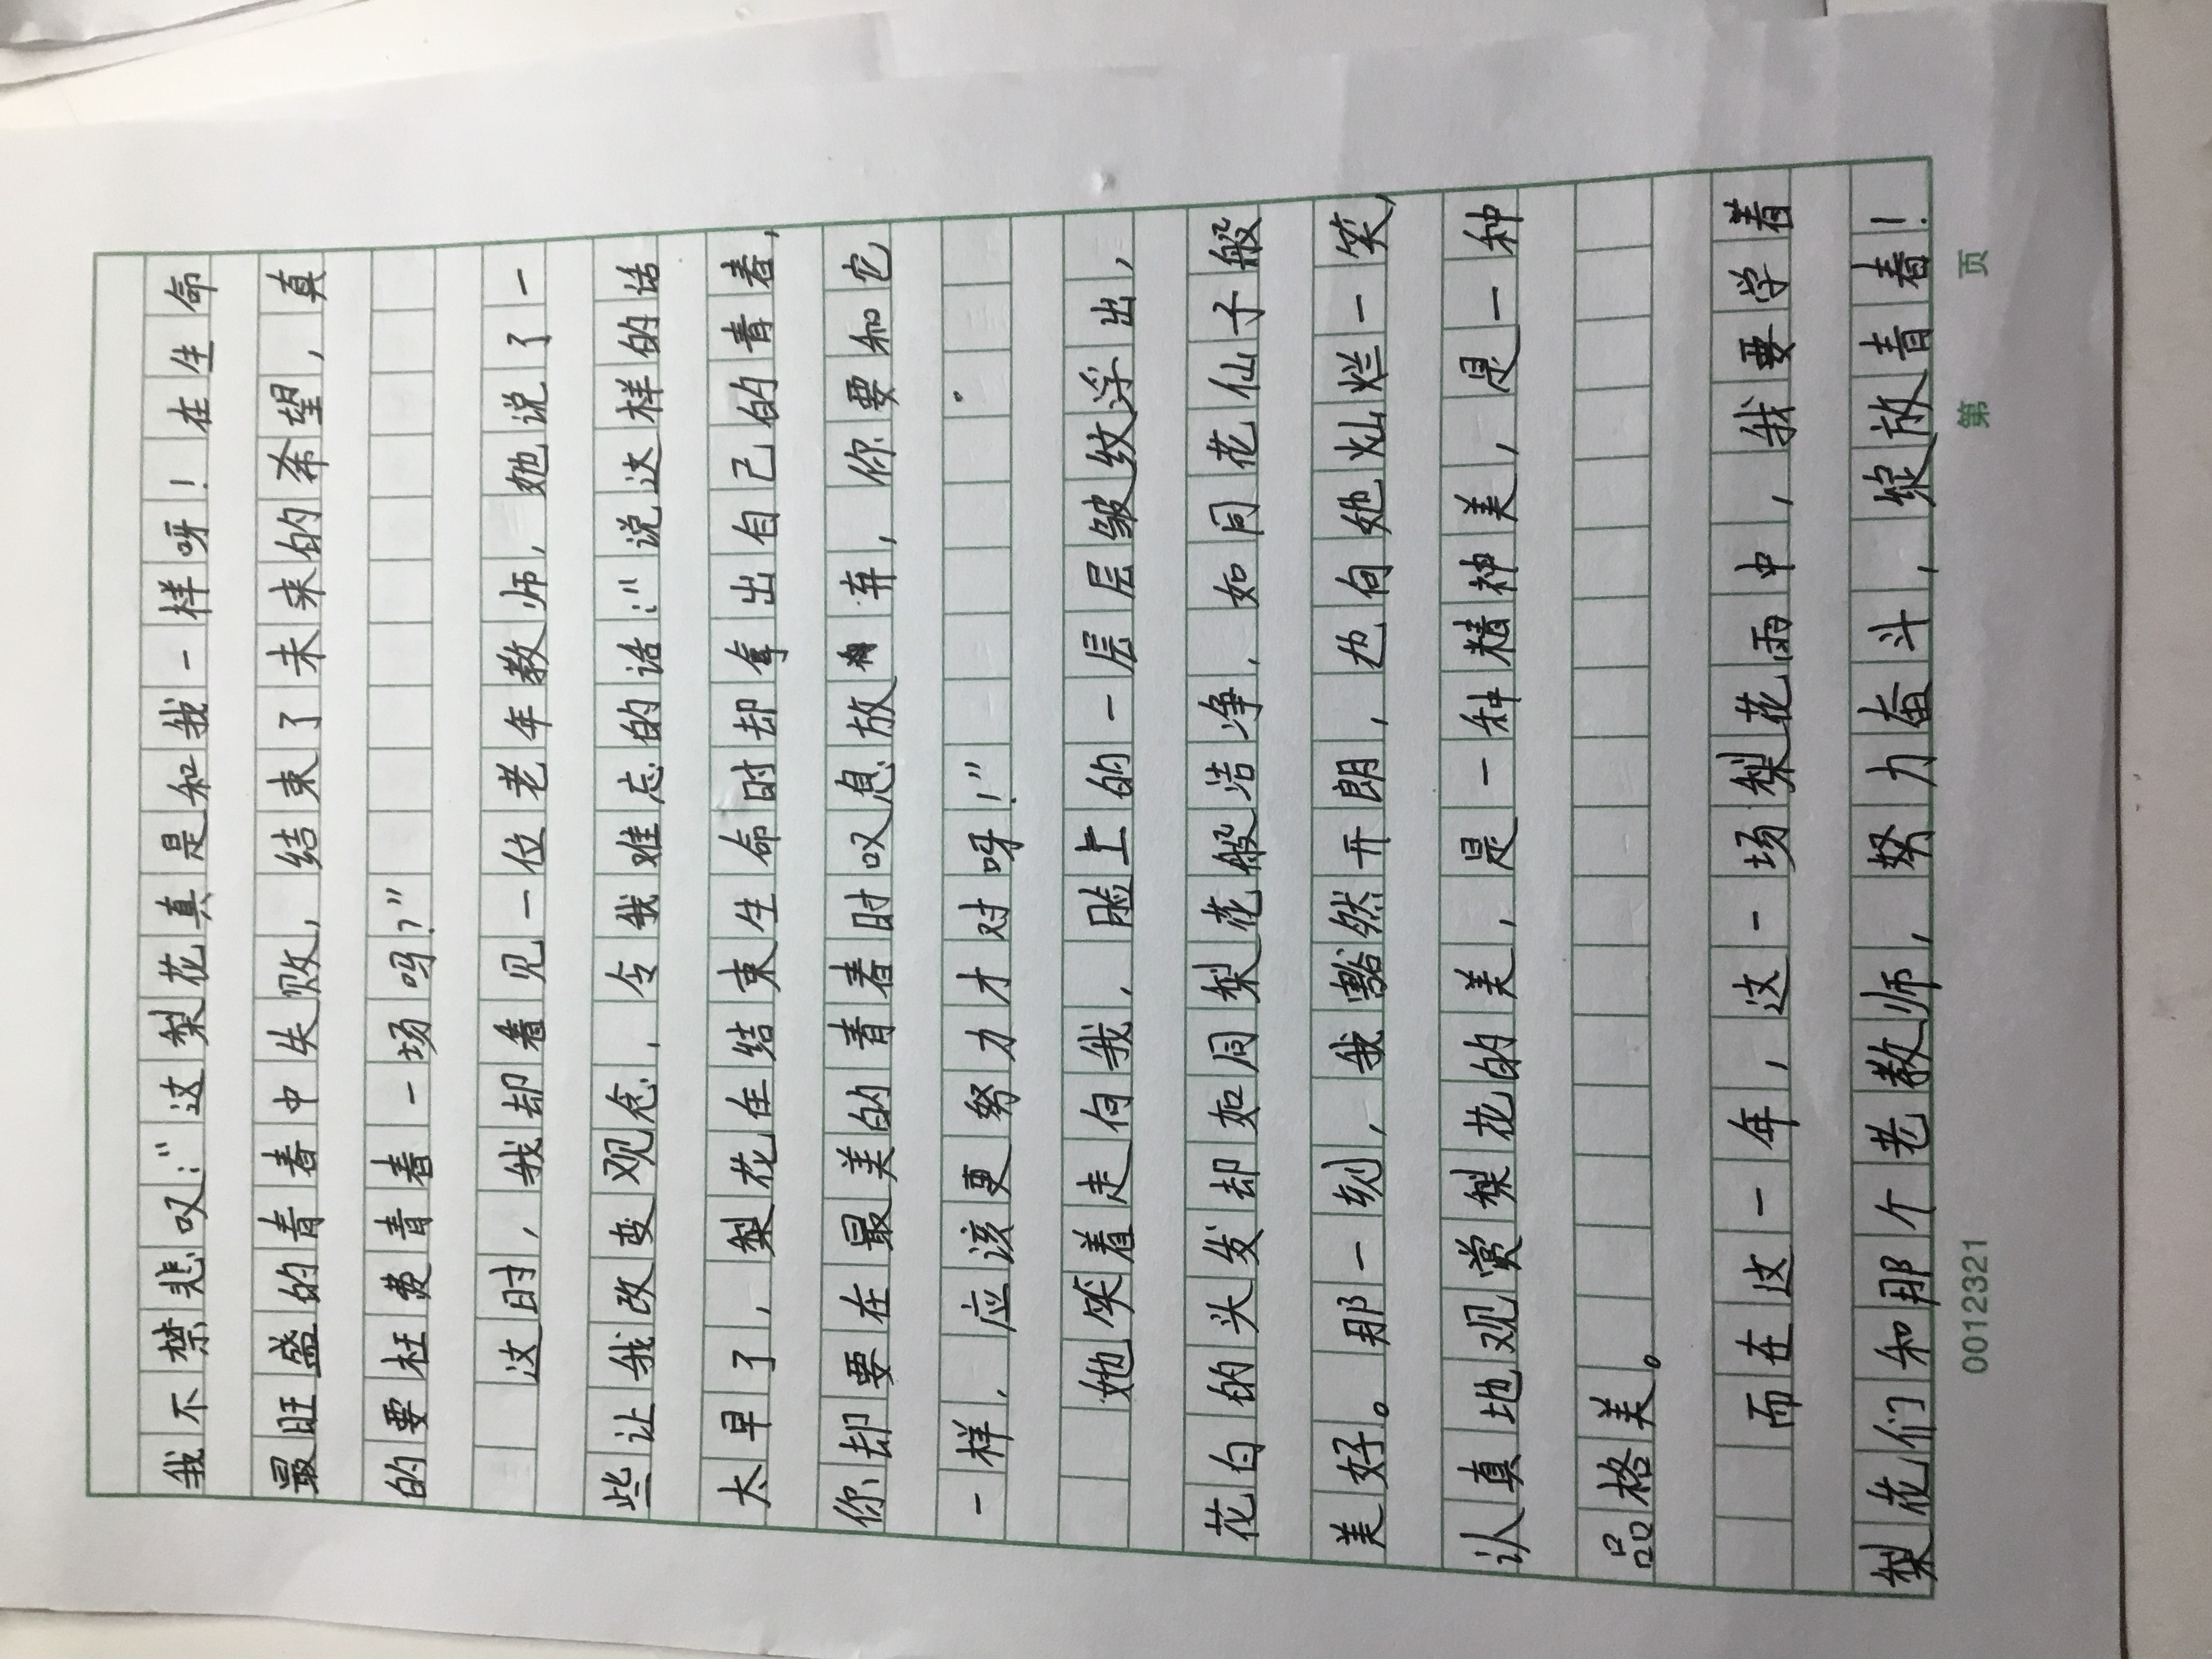 我不禁悲叹:“这梨花真是和我一样呀!在生命
最旺盛的青春中失败,结束了未来的希望,真
的要枉费青春一场吗?”
这时,我却看见一位老年教师,她说了一
些让我改变观念,令我难忘的话:“说这样的话
太早了,梨花在结束生命时却拿出自己的青春,
你却要在最美的青春时叹息放弃,你要和它
一样,应该更努力才对呀!”
她笑着走向我,脸上的一层层皱纹浮出,
花白的头发却如同梨花般洁净,如同花仙子般
美好。那一刻,我豁然开朗,也向她灿烂一笑,
认真地观赏梨花的美,是一种精神美,是一种
品格美。
而在这一年,这一场梨花雨中,我要学着
梨花们和那个老教师,努力奋斗,绽放青春!
0012321 第 页